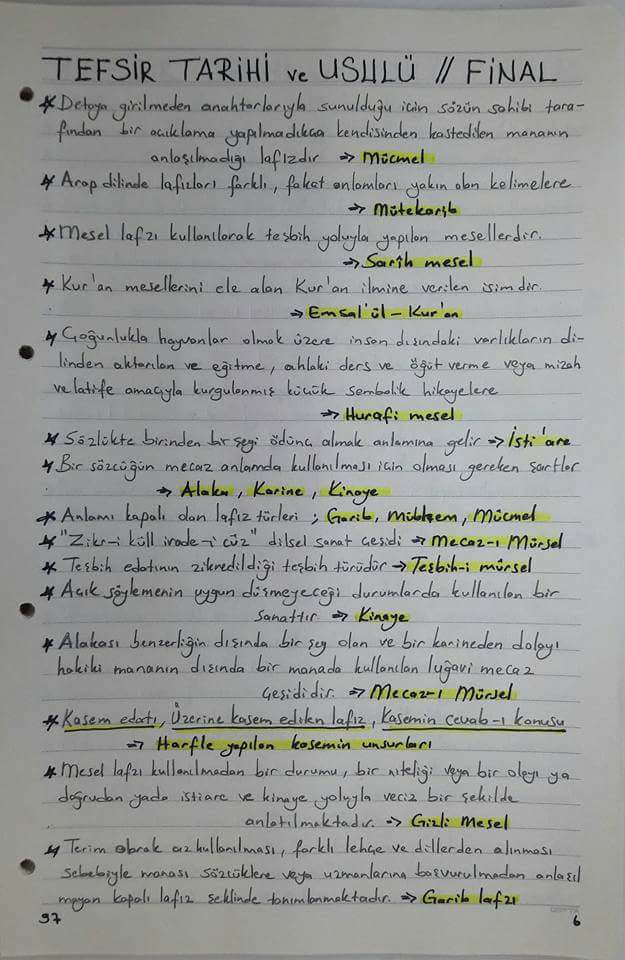 TEFSİR TARİHİ ve USULÜ // FİNAL
* Detaya girilmeden anahtarlarıyla sunulduğu için sözün sahibi tara-
fından bir açıklama yapılmadıkça kendisinden kastedilen mananın
anlaşılmadığı lafızdır ⇒ Mücmel
* Arap dilinde lafızları farklı, fakat anlamları yakın olan kelimelere
⇒ Mütekarib
* Mesel lafzı kullanılarak teşbih yoluyla yapılan mesellerdir.
⇒ Sarih mesel
* Kur'an mesellerini ele alan Kur'an ilmine verilen isimdir.
⇒ Emsal'ül - Kur'an
* Çoğunlukla hayvanlar olmak üzere insan dışındaki varlıkların di-
linden aktarılan ve eğitme, ahlaki ders ve öğüt verme veya mizah
ve latife amacıyla kurgulanmış küçük sembolik hikayelere
⇒ Hurafi mesel
* Sözlükte birinden bir şeyi ödünç almak anlamına gelir ⇒ İsti'are
* Bir sözcüğün mecaz anlamda kullanılması için olması gereken şartlar
⇒ Alaka, Karine, Kinaye
* Anlamı kapalı olan lafız türleri ; Garib, Mübhem, Mücmel
* "Zikr-i küll irade-i cüz" dilsel sanat çeşidi ⇒ Mecaz-ı Mürsel
* Teşbih edatının zikredildiği teşbih türüdür → Teşbih-i mürsel
* Açık söylemenin uygun düşmeyeceği durumlarda kullanılan bir
sanattır ⇒ Kinaye
* Alakası benzerliğin dışında bir şey olan ve bir karineden dolayı
hakiki mananın dışında bir manada kullanılan luğavi mecaz
çeşididir. ⇒ Mecaz-ı Mürsel
* Kasem edatı, Üzerine kasem edilen lafız, Kasemin cevab-ı konusu
⇒ Harfle yapılan kasemin unsurları
* Mesel lafzı kullanılmadan bir durumu, bir niteliği veya bir olayı ya
doğrudan yada istiare ve kinaye yoluyla veciz bir şekilde
anlatılmaktadır. ⇒ Gizli Mesel
* Terim olarak az kullanılması, farklı lehçe ve dillerden alınması
sebebiyle manası sözlüklere veya uzmanlarına başvurulmadan anlaşıl
mayan kapalı lafız şeklinde tanımlanmaktadır. ⇒ Garib lafzı
97 6